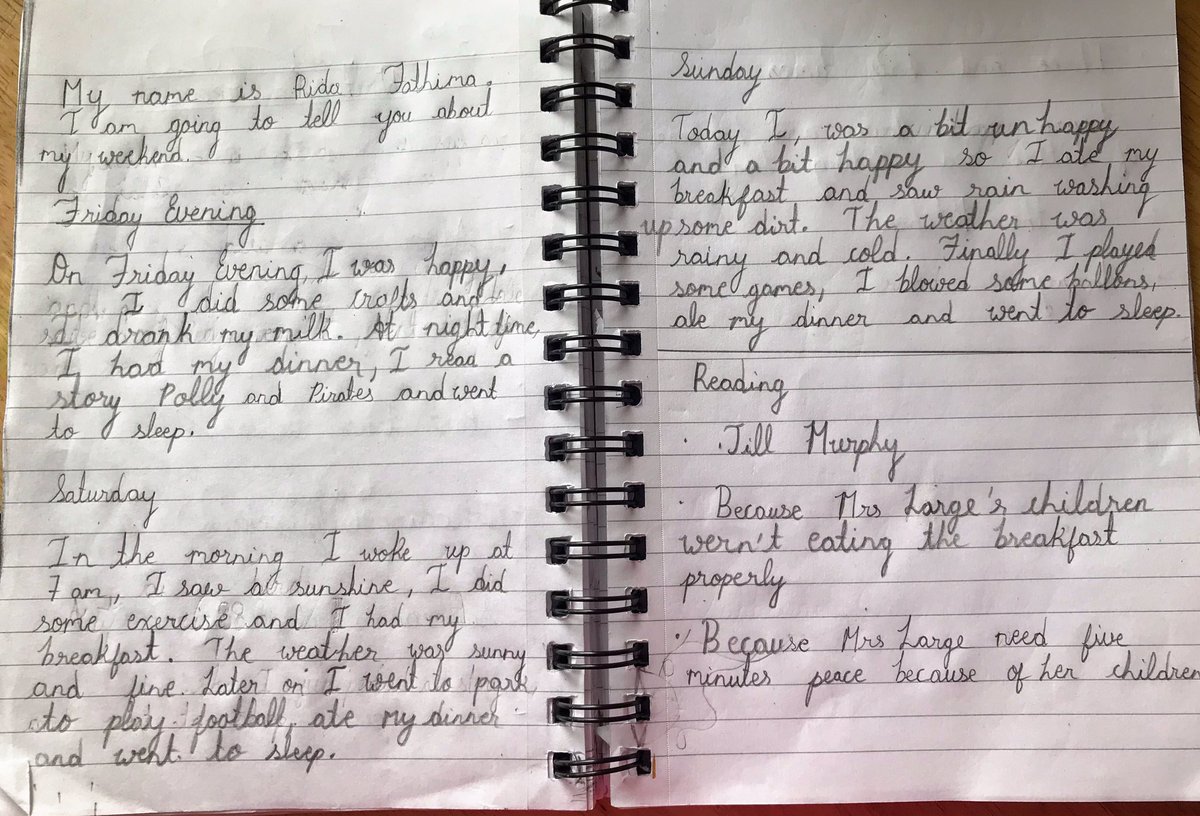 My name is Rida Fathima.
I am going to tell you about
my weekend.
Friday Evening
On Friday Evening, I was happy,
I did some crafts and
drank my milk. At night time,
I had my dinner, I read a
story Polly and Pirates and went
to sleep.
Saturday
In the morning I woke up at
7 am, I saw a sunshine, I did
some exercise and I had my
breakfast. The weather was sunny
and fine. Later on I went to park,
to play football, ate my dinner
and went to sleep.
Sunday
Today I, was a bit unhappy
and a bit happy so I ate my
breakfast and saw rain washing
up some dirt. The weather was
rainy and cold. Finally I played
some games, I blowed some ballons,
ate my dinner and went to sleep.
Reading
· Jill Murphy
· Because Mrs Large's children
wern't eating the breakfast
properly
· Because Mrs Large need five
minutes peace because of her children